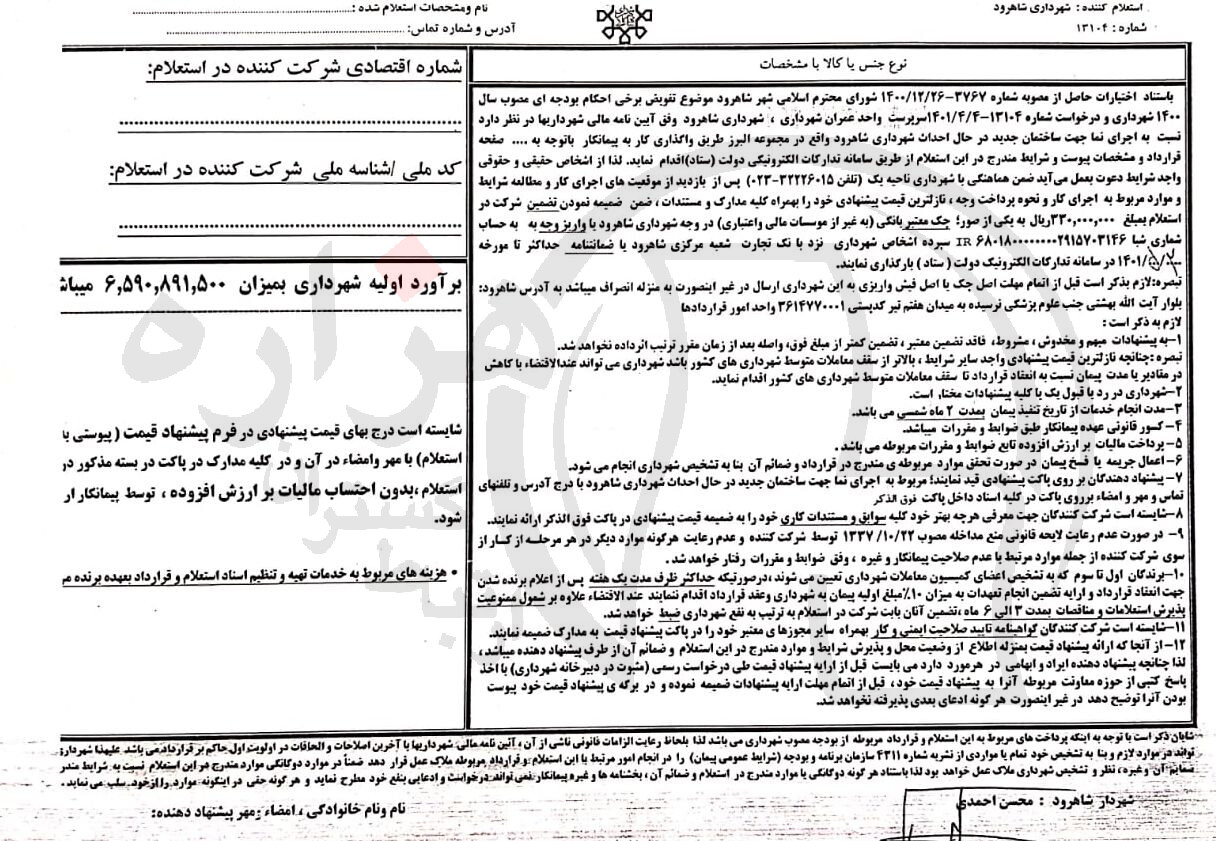 استعلام کننده : شهرداری شاهرود
شماره : ۱۳۱۰۴
نام ومشخصات استعلام شده :
آدرس و شماره تماس:
نوع جنس یا کالا با مشخصات
باستناد اختیارات حاصل از مصوبه شماره ۳۷۶۷-۱۴۰۰/۱۲/۲۶ شورای محترم اسلامی شهر شاهرود موضوع تفویض برخی احکام بودجه ای مصوب سال
۱۴۰۰ شهرداری و درخواست شماره ۱۳۱۰۴-۱۴۰۱/۴/۴سرپرست واحد عمران شهرداری ، شهرداری شاهرود وفق آیین نامه مالی شهرداریها در نظر دارد
نسبت به اجرای نما جهت ساختمان جدید در حال احداث شهرداری شاهرود واقع در مجموعه البرز طریق واگذاری کار به پیمانکار باتوجه به .... صفحه
قرارداد و مشخصات پیوست و شرایط مندرج در این استعلام از طریق سامانه تدارکات الکترونیکی دولت (ستاد)اقدام نماید. لذا از اشخاص حقیقی و حقوقی
واجد شرایط دعوت بعمل می‌آید ضمن هماهنگی با شهرداری ناحیه یک (تلفن ۳۲۲۲۶۰۱۵-۰۲۳) پس از بازدید از موقعیت های اجرای کار و مطالعه شرایط
و موارد مربوط به اجرای کار و نحوه پرداخت وجه ، نازلترین قیمت پیشنهادی خود را بهمراه کلیه مدارک و مستندات ، ضمن ضمیمه نمودن تضمین شرکت در
استعلام بمبلغ ۳۳۰,۰۰۰,۰۰۰ریال به یکی از صور؛ چک معتبر بانکی (به غیر از موسسات مالی واعتباری) در وجه شهرداری شاهرود یا واریز وجه به به حساب
شماری شبا IR ۶۸۰۱۸۰۰۰۰۰۰۰۰۰۲۹۱۵۷۰۳۱۴۶ سپرده اشخاص شهرداری نزد با نک تجارت شعبه مرکزی شاهرود یا ضمانتنامه حداکثر تا مورخه
در سامانه تدارکات الکترونیک دولت ( ستاد ) بارگذاری نمایند.
تبصره:لازم بذکر است قبل از اتمام مهلت اصل چک یا اصل فیش واریزی به این شهرداری ارسال در غیر اینصورت به منزله انصراف میباشد به آدرس شاهرود:
بلوار آیت الله بهشتی جنب علوم پزشکی نرسیده به میدان هفتم تیر کدپستی ۳۶۱۴۷۷۰۰۰۱ واحد امور قراردادها
لازم به ذکر است :
۱-به پیشنهادات مبهم و مخدوش ، مشروط، فاقد تضمین معتبر ، تضمین کمتر از مبلغ فوق، واصله بعد از زمان مقرر ترتیب اثرداده نخواهد شد.
تبصره :چنانچه نازلترین قیمت پیشنهادی واجد سایر شرایط ، بالاتر از سقف معاملات متوسط شهرداری های کشور باشد شهرداری می تواند عندالاقتضاء با کاهش
در مقادیر یا مدت پیمان نسبت به انعقاد قرارداد تا سقف معاملات متوسط شهرداری های کشور اقدام نماید.
۲-شهرداری در رد یا قبول یک یا کلیه پیشنهادات مختار است.
۳-مدت انجام خدمات از تاریخ تنفیذ پیمان بمدت ۲ ماه شمسی می باشد.
۴-کسور قانونی عهده پیمانکار طبق ضوابط و مقررات میباشد.
۵-پرداخت مالیات بر ارزش افزوده تابع ضوابط و مقررات مربوطه می باشد .
۶-اعمال جریمه یا فسخ پیمان در صورت تحقق موارد مربوطه ی مندرج در قرارداد و ضمائم آن بنا به تشخیص شهرداری انجام می شود.
۷-پیشنهاد دهندگان بر روی پاکت پیشنهادی قید نمایند؛ مربوط به اجرای نما جهت ساختمان جدید در حال احداث شهرداری شاهرود با درج آدرس و تلفنهای
تماس و مهر و امضاء برروی پاکت در کلیه اسناد داخل پاکت فوق الذکر
۸-شایسته است شرکت کنندگان جهت معرفی هرچه بهتر خود کلیه سوابق و مستندات کاری خود را به ضمیمه قیمت پیشنهادی در پاکت فوق الذکر ارائه نمایند.
۹- در صورت عدم رعایت لایحه قانونی منع مداخله مصوب ۱۳۳۷/۱۰/۲۲ توسط شرکت کننده و عدم رعایت هرگونه موارد دیگر در هر مرحله از کار از
سوی شرکت کننده از جمله موارد مرتبط با عدم صلاحیت پیمانکار و غیره ، وفق ضوابط و مقررات رفتار خواهد شد.
۱۰-برندگان اول تا سوم که به تشخیص اعضای کمیسیون معاملات شهرداری تعیین می شوند ،درصورتیکه حداکثر ظرف مدت یک هفته پس از اعلام برنده شدن
جهت انعقاد قرارداد و ارایه تضمین انجام تعهدات به میزان ۱۰٪مبلغ اولیه پیمان به شهرداری وعقد قرارداد اقدام ننمایند عند الاقتضاء علاوه بر شمول ممنوعیت
پذیرش استعلامات و مناقصات بمدت ۳ الی ۶ ماه ،تضمین آنان بابت شرکت در استعلام به ترتیب به نفع شهرداری ضبط خواهد شد.
۱۱-شایسته است شرکت کنندگان گواهینامه تایید صلاحیت ایمنی و کار بهمراه سایر مجوزهای معتبر خود را در پاکت پیشنهاد قیمت به مدارک ضمیمه نمایند.
۱۲-از آنجا که ارائه پیشنهاد قیمت بمنزله اطلاع از وضعیت محل و پذیرش شرایط و موارد مندرج در این استعلام و ضمائم آن از طرف پیشنهاد دهنده میباشد ،
لذا چنانچه پیشنهاد دهنده ایراد و ابهامی در هرمورد دارد می بایست قبل از ارایه پیشنهاد قیمت طی درخواست رسمی (مثبوت در دبیرخانه شهرداری) با اخذ
پاسخ کتبی از حوزه معاونت مربوطه آنرا به پیشنهاد قیمت خود ، قبل از اتمام مهلت ارایه پیشنهادات ضمیمه نموده و در برگه ی پیشنهاد قیمت خود پیوست
بودن آنرا توضیح دهد در غیر اینصورت هر گونه ادعای بعدی پذیرفته نخواهد شد.
شماره اقتصادی شرکت کننده در استعلام:
کد ملی /شناسه ملی شرکت کننده در استعلام:
برآورد اولیه شهرداری بمیزان ۶,۵۹۰,۸۹۱,۵۰۰ میباش
شایسته است درج بهای قیمت پیشنهادی در فرم پیشنهاد قیمت ( پیوستی به
استعلام) با مهر وامضاء در آن و در کلیه مدارک در پاکت در بسته مذکور در
استعلام ،بدون احتساب مالیات بر ارزش افزوده ، توسط پیمانکار ار
شود.
• هزینه های مربوط به خدمات تهیه و تنظیم اسناد استعلام و قرارداد بعهده برنده می
هزاره
شایان ذکر است با توجه به اینکه پرداخت های مربوط به این استعلام و قرارداد مربوطه از بودجه مصوب شهرداری می باشد لذا بلحاظ رعایت الزامات قانونی ناشی از آن ، آئین نامه مالی شهرداریها با آخرین اصلاحات و الحاقات در اولویت اول حاکم بر قرارداد می باشد علیهذا شهرداری
تواند در موارد لازم و بنا به تشخیص خود تمام یا مواردی از نشریه شماره ۴۳۱۱ سازمان برنامه و بودجه (شرایط عمومی پیمان) را در انجام امور مرتبط با این استعلام و قرارداد مربوطه ملاک عمل قرار دهد ضمناً در موارد دوگانکی موارد مندرج در این استعلام نسبت به شرایط مندر
ضمایم آن وغیره، نظر و تشخیص شهرداری ملاک عمل خواهد بود لذا باستناد هر گونه دوگانکی یا موارد مندرج در استعلام و ضمائم آن ، بخشنامه ها و غیره پیمانکار نمی تواند درخواست و ادعایی بنفع خود مطرح نماید و هرگونه حقی در اینگونه موارد را از خود سلب می نماید .
شهردار شاهرود : محسن احمدی
نام ونام خانوادگی ، امضاء ومهر پیشنهاد دهنده: